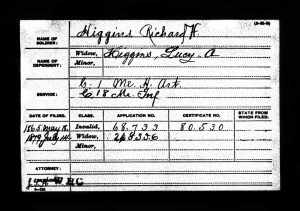 (3-212)
NAME OF SOLDIER: Higgins Richard H.
NAME OF DEPENDENT: Widow, Higgins, Lucy A
Minor,
SERVICE: C. 1 Me. H. Art.
C. 18 Me. Inf
DATE OF FILING. CLASS. APPLICATION NO. CERTIFICATE NO. STATE FROM WHICH FILED.
1865 May 18. Invalid, 68.733 80.530
1879 July Widow,
Minor,
ATTORNEY: